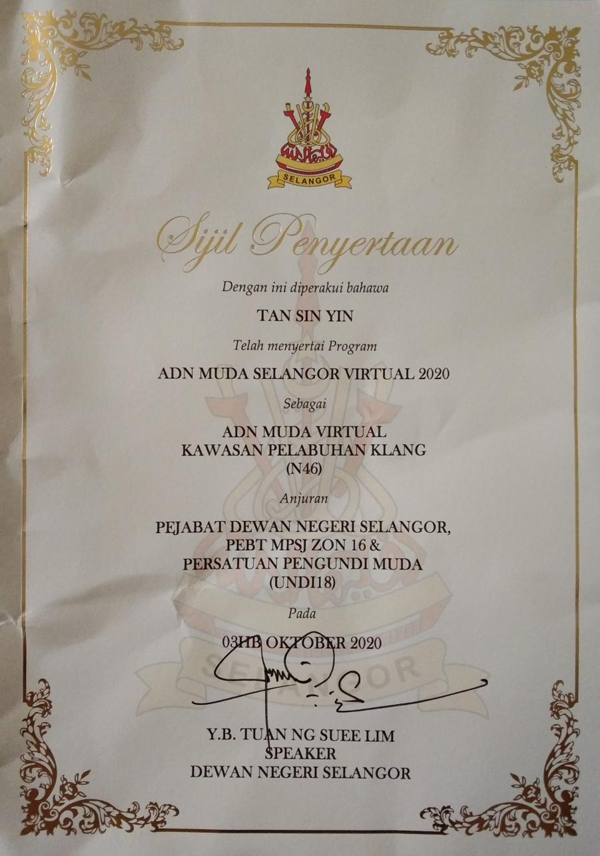 SELANGOR
Sijil Penyertaan
Dengan ini diperakui bahawa
TAN SIN YIN
Telah menyertai Program
ADN MUDA SELANGOR VIRTUAL 2020
Sebagai
ADN MUDA VIRTUAL
KAWASAN PELABUHAN KLANG
(N46)
Anjuran
PEJABAT DEWAN NEGERI SELANGOR,
PEBT MPSJ ZON 16 &
PERSATUAN PENGUNDI MUDA
(UNDI18)
Pada
03HB OKTOBER 2020
SELANGOR
Y.B. TUAN NG SUEE LIM
SPEAKER
DEWAN NEGERI SELANGOR